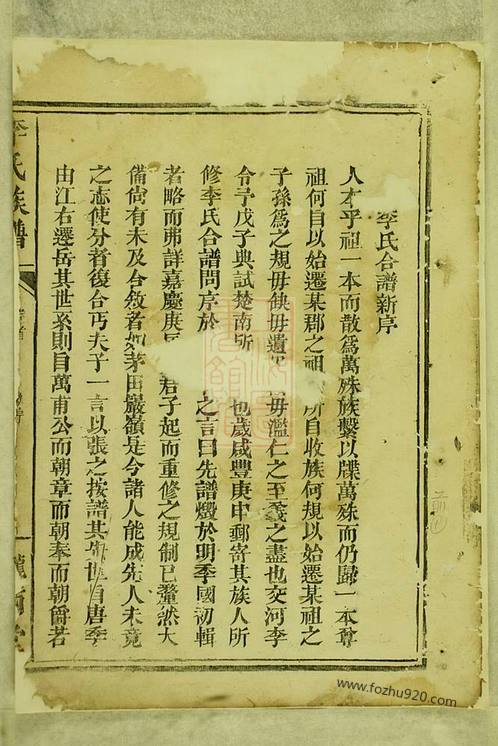 李氏合譜新序
人才乎祖一本而散為萬殊族繫以牒萬殊而仍歸一本尊
祖何自以始遷某郡之祖 所自收族何規以始遷某祖之
子孫為之規毋缺毋遺 毋濫仁之至義之盡也交河李
令予戊子典試楚南所 也歲咸豐庚申郵寄其族人所
修李氏合譜問序於 之言曰先譜燬於明季國初輯
者略而弗詳嘉慶庚 君子起而重修之規制已釐然大
備尙有未及合敘者如茅田巖嶺是今諸人能成先人未竟
之志使分者復合丐夫子一言以張之按譜其 世自唐季
由江右遷岳其世系則自萬甫公而朝章而朝奏而朝爵若
李氏族譜
www.fozhu920.com